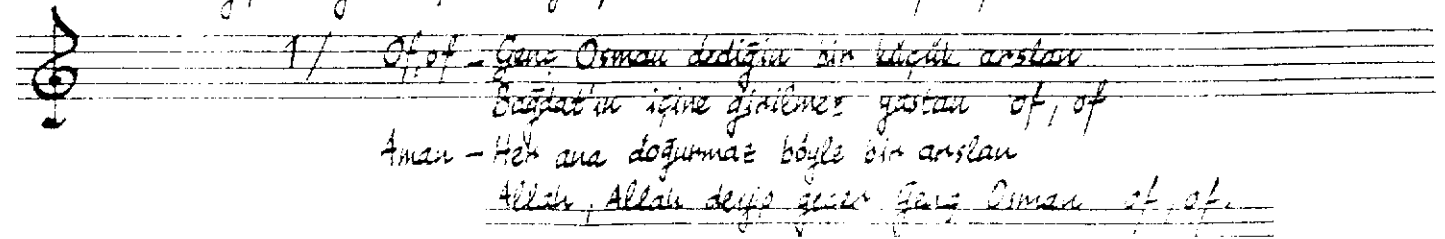 1/ Of, of - Genç Osman dediğin bir küçük arslan
Bağdat'ın içine girilmez yastan of, of
Aman - Her ana doğurmaz böyle bir arslan
Allah, Allah deyip geçer Genç Osman of, of.